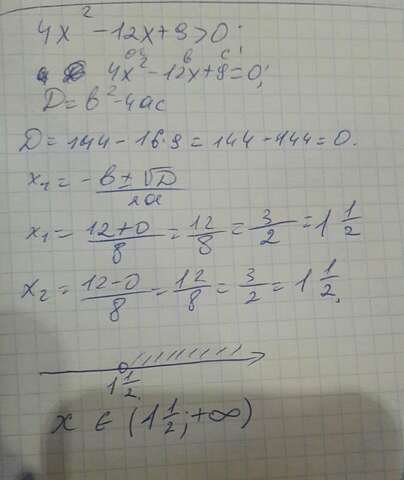 4x² - 12x + 9 > 0;
4x² - 12x + 9 = 0;
a в c
D = в² - 4ac
D = 144 - 16·9 = 144 - 444 = 0.
x₁ = -в ± √D / 2a
x₁ = 12+0 / 8 = 12/8 = 3/2 = 1 1/2
x₂ = 12-0 / 8 = 12/8 = 3/2 = 1 1/2,
1 1/2
x ∈ (1 1/2; +∞)